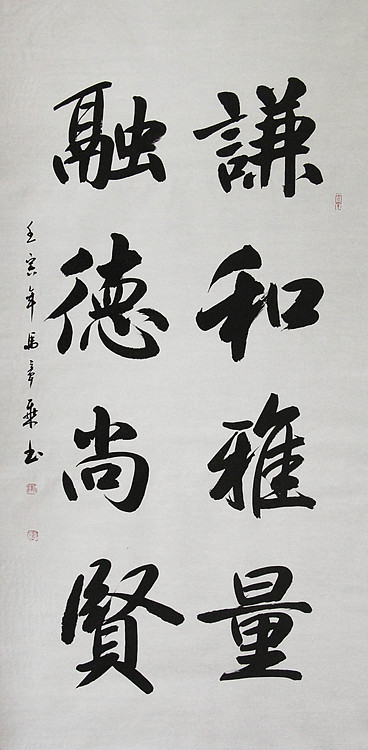 謙和雅量
融德尚賢
壬寅年馬彥乗书